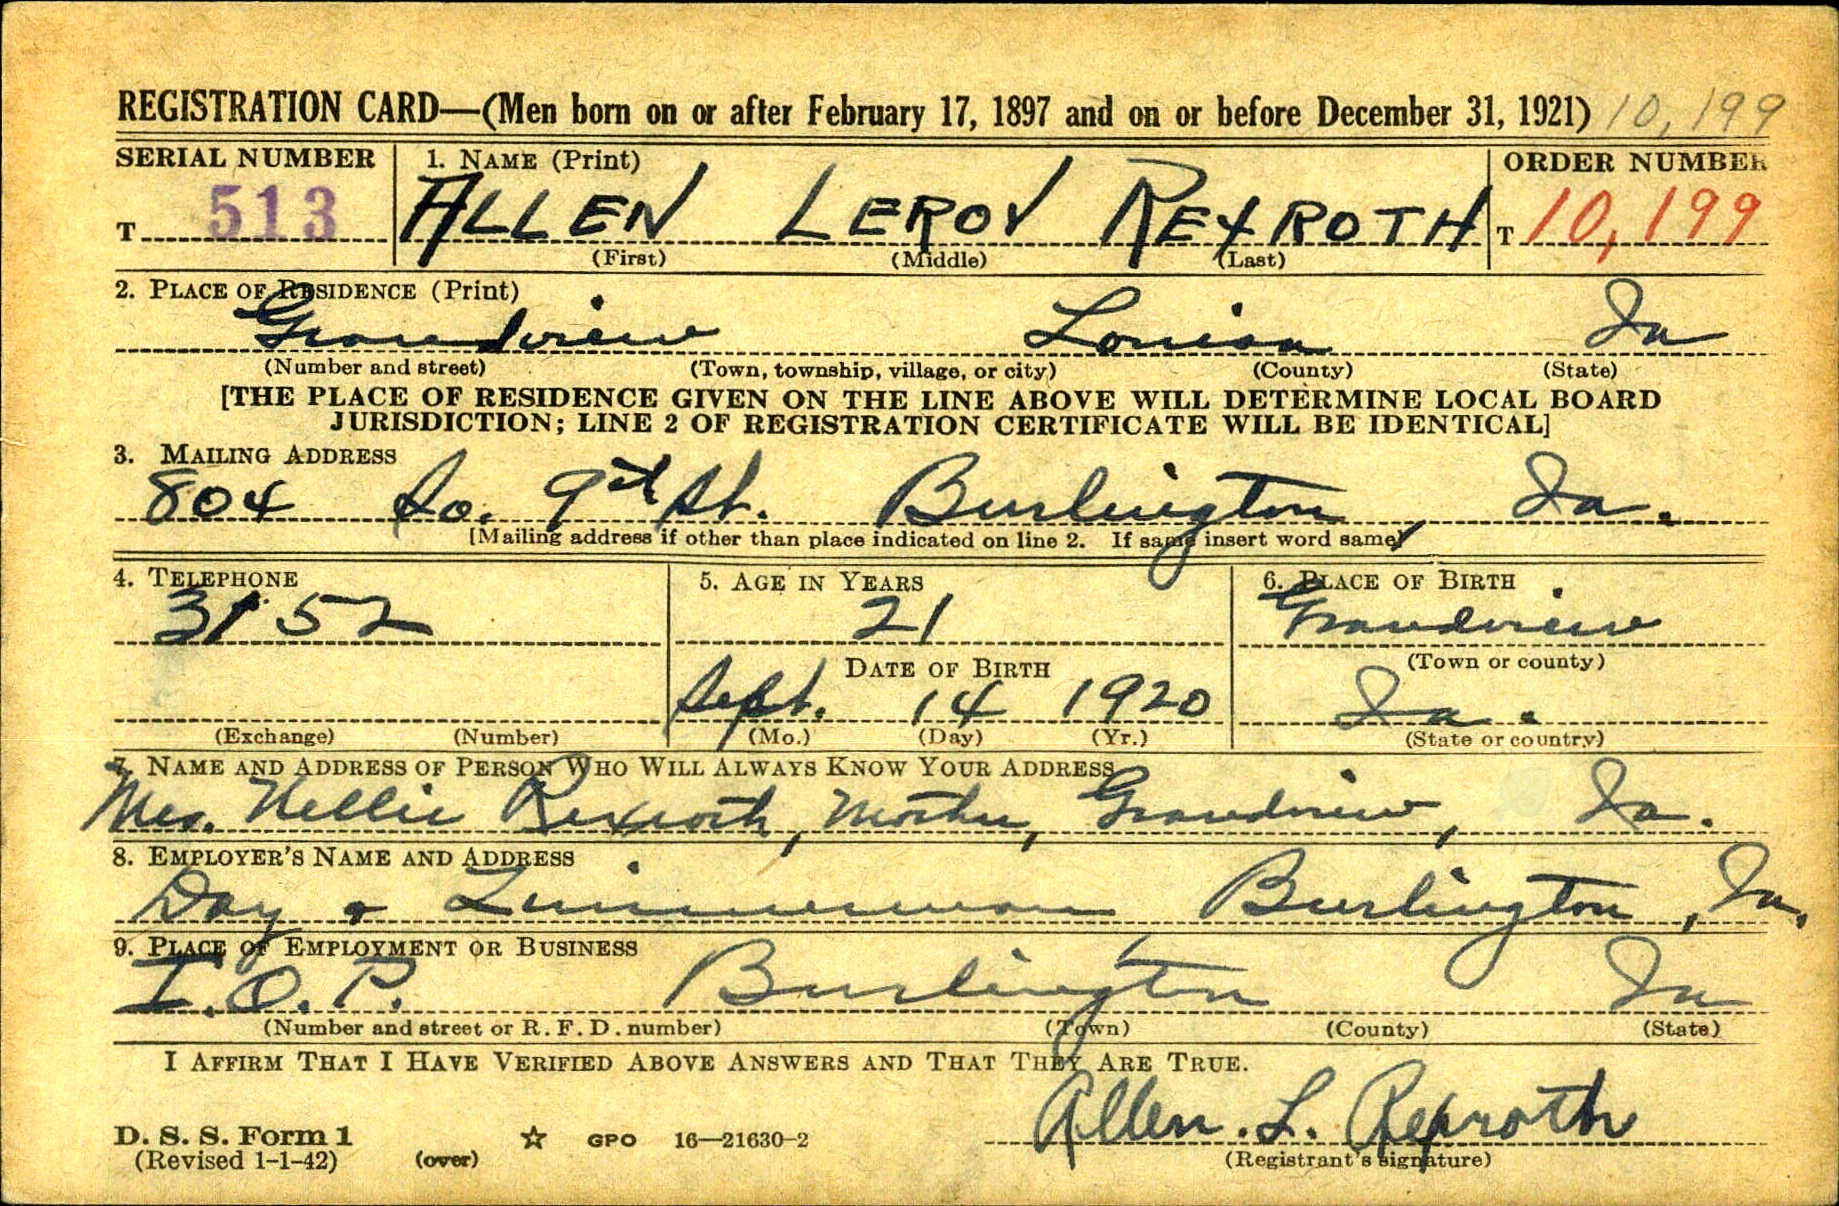 REGISTRATION CARD—(Men born on or after February 17, 1897 and on or before December 31, 1921) 10,199
SERIAL NUMBER 1. NAME (Print) ORDER NUMBER
T 513 ALLEN LEROY REXROTH T 10,199
(First) (Middle) (Last)
2. PLACE OF RESIDENCE (Print)
Grandview Louisa Ia
(Number and street) (Town, township, village, or city) (County) (State)
[THE PLACE OF RESIDENCE GIVEN ON THE LINE ABOVE WILL DETERMINE LOCAL BOARD
JURISDICTION; LINE 2 OF REGISTRATION CERTIFICATE WILL BE IDENTICAL]
3. MAILING ADDRESS
804 So. 9th St. Burlington, Ia.
[Mailing address if other than place indicated on line 2. If same insert word same]
4. TELEPHONE 5. AGE IN YEARS 6. PLACE OF BIRTH
3152 21 Grandview
DATE OF BIRTH (Town or county)
Sept. 14 1920 Ia.
(Exchange) (Number) (Mo.) (Day) (Yr.) (State or country)
7. NAME AND ADDRESS OF PERSON WHO WILL ALWAYS KNOW YOUR ADDRESS
Mrs. Nellie Rexroth, Mother, Grandview, Ia.
8. EMPLOYER'S NAME AND ADDRESS
Day & Zimmerman Burlington, Ia.
9. PLACE OF EMPLOYMENT OR BUSINESS
I.O.P. Burlington Ia
(Number and street or R. F. D. number) (Town) (County) (State)
I AFFIRM THAT I HAVE VERIFIED ABOVE ANSWERS AND THAT THEY ARE TRUE.
Allen. L. Rexroth
D. S. S. Form 1 (Revised 1-1-42) (over) ☆ GPO 16—21630-2 (Registrant's signature)